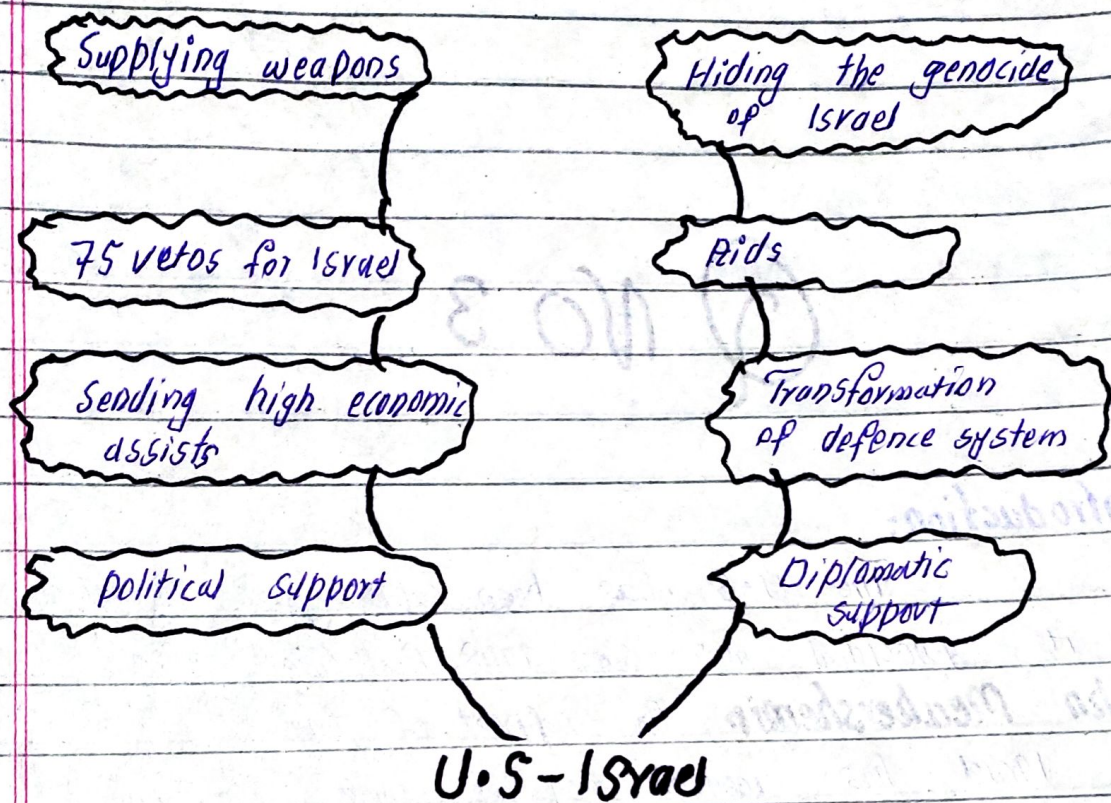 Supplying weapons
75 vetos for Israel
Sending high economic
assists
Political support
Hiding the genocide
of Israel
Aids
Transformation
of defence system
Diplomatic
support
U.S - Israel
Q NO 3
ntroduction: